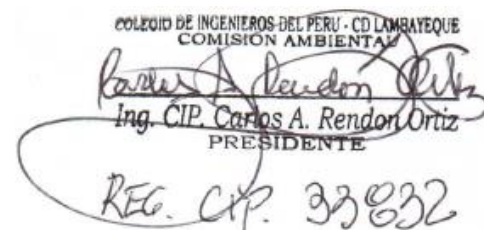 COLEGIO DE INGENIEROS DEL PERU - CD LAMBAYEQUE
COMISIÓN AMBIENTAL
Carlos A Rendon Ortiz
Ing. CIP. Carlos A. Rendon Ortiz
PRESIDENTE
REG. CIP. 33832